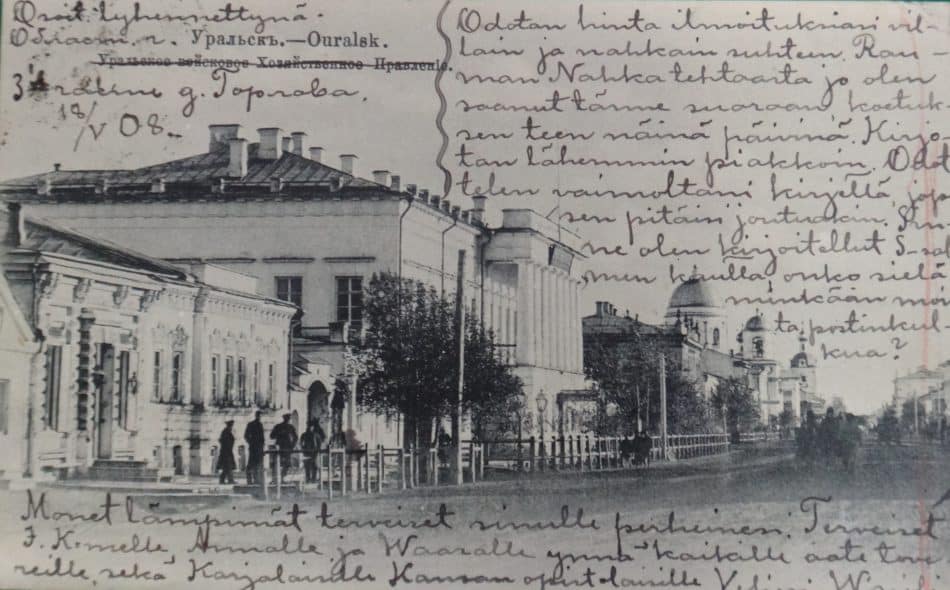 Osoit. lyhennettynä.
Област. г. Уральскъ.—Ouralsk.
Уральское войсковое Хозяйственное Правленіе.
д. Горлова.
18/V 08.
Odotan hinta ilmoituksian vil-
lain ja nahkain suhteen. Rau-
man Nahkatehtaasta jo olen
saanut tänne suoraan koetuk-
sen teen näinä päivinä. Kirjo-
tan lähemmin piakkoin. Odot-
telen vaimoltani kirjettä, jop
sen pitäin joutuakin. Sin-
ne olen kirjoitellut 5.sa
men kautta, onko sielä
minkään mo
ta postinkul
kua?
Monet lämpimät terveiset sinulle perheinen. Terveiset
J. K-melle, Annalle ja Waaralle ynnä kaikille aate tove
reille, sekä Karjalaisille Kansan opist-laisille Veljesi